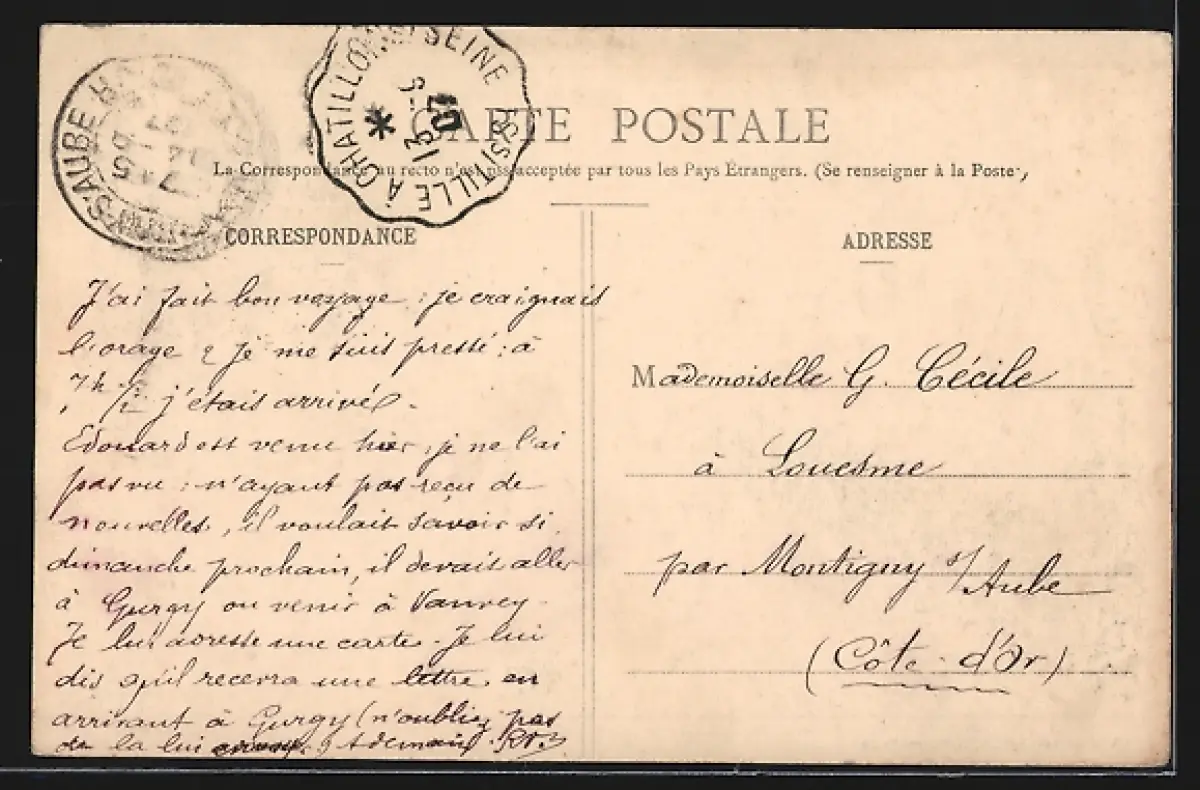 CHATILLON SEINE
IS S TILLE À
13 - 5
07
S/AUBE
14 - 5
07
CARTE POSTALE
La Correspondance au recto n'est pas acceptée par tous les Pays Étrangers. (Se renseigner à la Poste,)
CORRESPONDANCE
J'ai fait bon voyage : je craignais
l'orage & je me suis pressé : à
7h 1/2 j'étais arrivé.
Edouard est venu hier, je ne l'ai
pas vu : n'ayant pas reçu de
nouvelles, il voulait savoir si
dimanche prochain, il devait aller
à Gurgy ou venir à Vanvey.
Je lui adresse une carte. Je lui
dis qu'il recevra une lettre en
arrivant à Gurgy (n'oubliez pas
de la lui A demain.
ADRESSE
Mademoiselle G. Cécile
à Louesme
par Montigny s/ Aube
(Côte-d'Or)